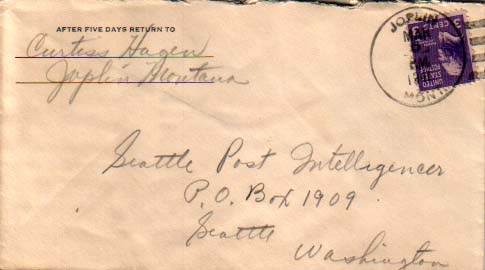 AFTER FIVE DAYS RETURN TO
Curtiss Hagen
Joplin Montana
JOPLIN
MAR
MONT
3 CENTS 3
UNITED
STATES
POSTAGE
Seattle Post Intelligencer
P.O. Box 1909
Seattle
Washington